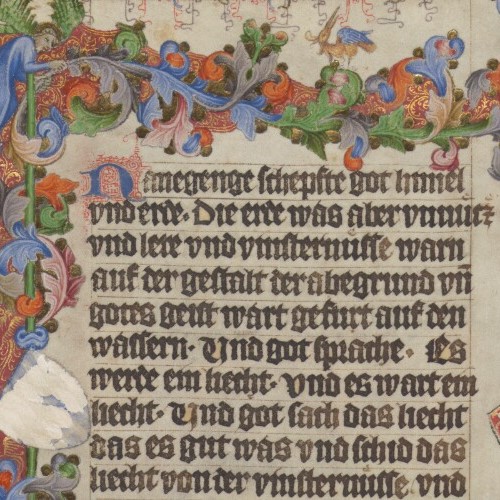 Anegenge schepfte got himel
vnd erde. Die erde was aber vnnutz
vnd lere vnd vinsternusse warn
auf der gestalt der abegrund vn̄
gotes geist wart gefurt auf den
wassern. Vnd got sprache. Es
werde ein liecht. vnd es wart ein
liecht. Vnd got sach das liecht
das es gut was vnd schid das
liecht von der vinsternusse vnd